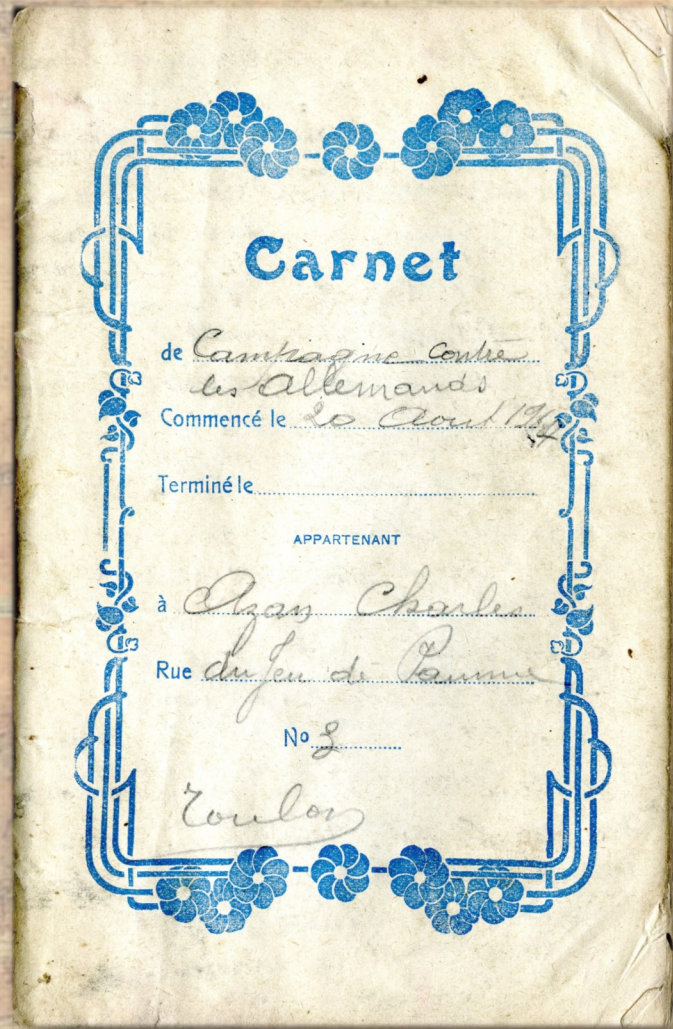 Carnet
de Campagne contre
les Allemands
Commencé le 20 Aout 191
Terminé le
APPARTENANT
à Azan Charles
Rue du Jeu de Paume
No 3
Toulon